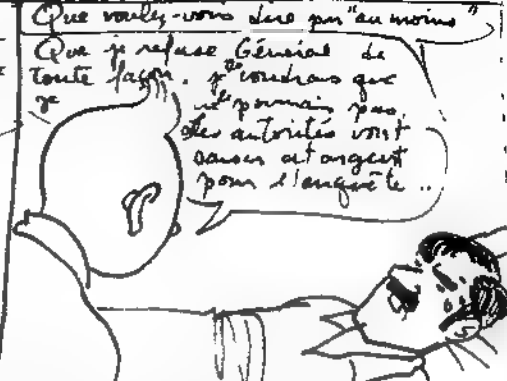 Que voulez-vous dire par "au moins"
Que je refuse Général de
toute façon. je voudrais que
je ne pourrais pas.
Les autorités vont
cet argent
pour l'enquête ..